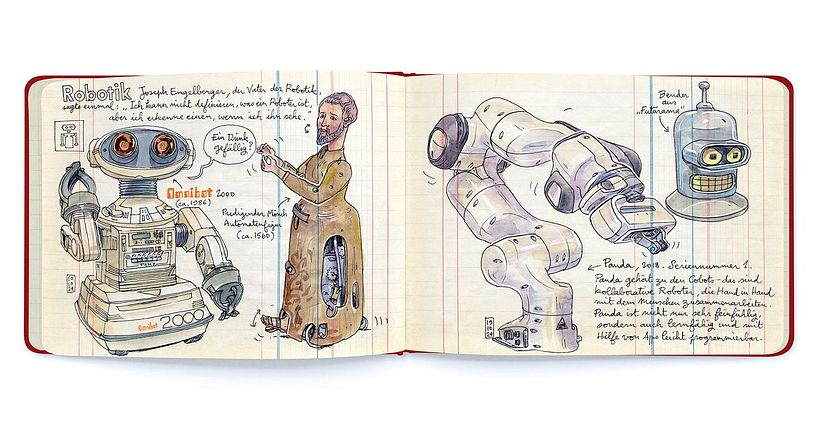 Robotik Joseph Engelberger, der Vater der Robotik,
sagte einmal: „Ich kann nicht definieren, was ein Roboter ist,
aber ich erkenne einen, wenn ich ihn sehe."
Ein Drink
gefällig?
Omnibot 2000
(ca. 1986)
Predigender Mönch
Automatenfigur
(ca. 1560)
Omnibot
2000
Bender
aus
„Futurama"
← Panda, 2018. Seriennummer 1.
Panda gehört zu den Cobots – das sind
kollaborative Roboter, die Hand in Hand
mit dem Menschen zusammenarbeiten.
Panda ist nicht nur sehr feinfühlig,
sondern auch lernfähig und mit
Hilfe von Aps leicht programmierbar.